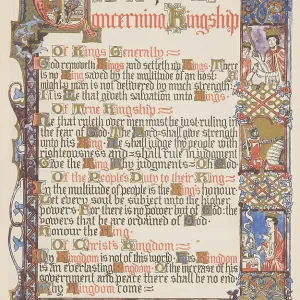 Concerning Kingship
Of Kings Generally
God removeth Kings and setteth up Kings. There
is no King saved by the multitude of an host: A
mighty man is not delivered by much strength:
It is He that giveth salvation unto Kings.
Of True Kingship
He that ruleth over men must be just·ruling in
the fear of God·The Lord·shall give strength
unto his King·He shall judge thy people with
righteousness and·shall rule in judgment
Give the King Thy judgments·O God
Of the People's Duty to their King
In the multitude of people is the King's honour
Let every soul be subject unto the higher
powers·For there is no power but of God·the
powers that be are ordained of God·
Honour the King·
Of Christ's Kingdom
My Kingdom is not of this world·His Kingdom
is an everlasting Kingdom·Of the increase of his
government and peace there shall be no end
Thy Kingdom come